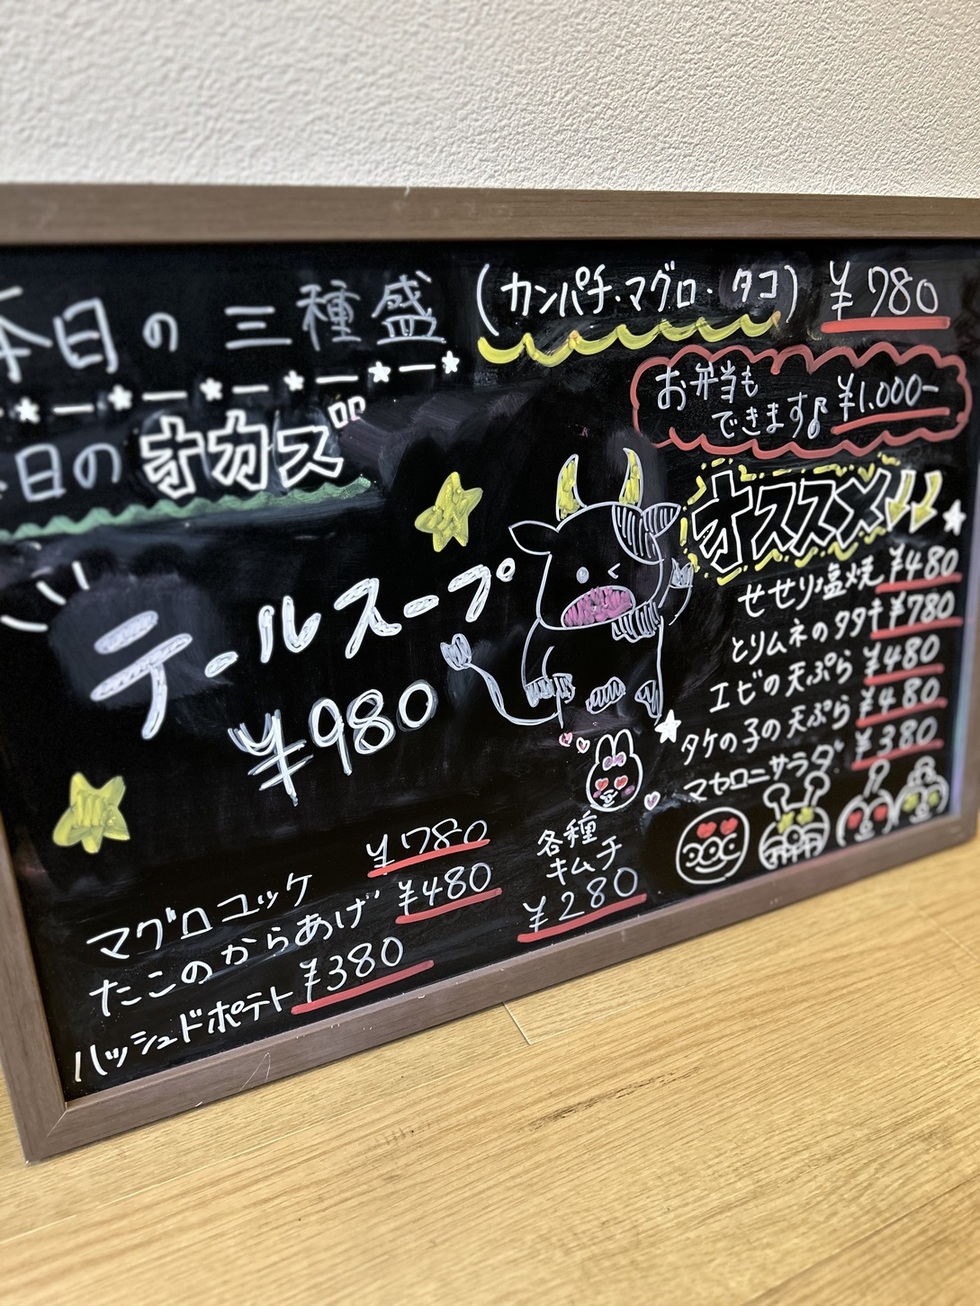 本日の三種盛 (カンパチ・マグロ・タコ) ¥780
お弁当も
できます♪ ¥1,000-
本日のオカズ
テールスープ
¥980
オススメ!!
せせり塩焼 ¥480
とりムネのタタキ ¥780
エビの天ぷら ¥480
タケの子の天ぷら ¥480
マカロニサラダ ¥380
マグロユッケ ¥780
たこのからあげ ¥480
ハッシュドポテト ¥380
各種
キムチ
¥280